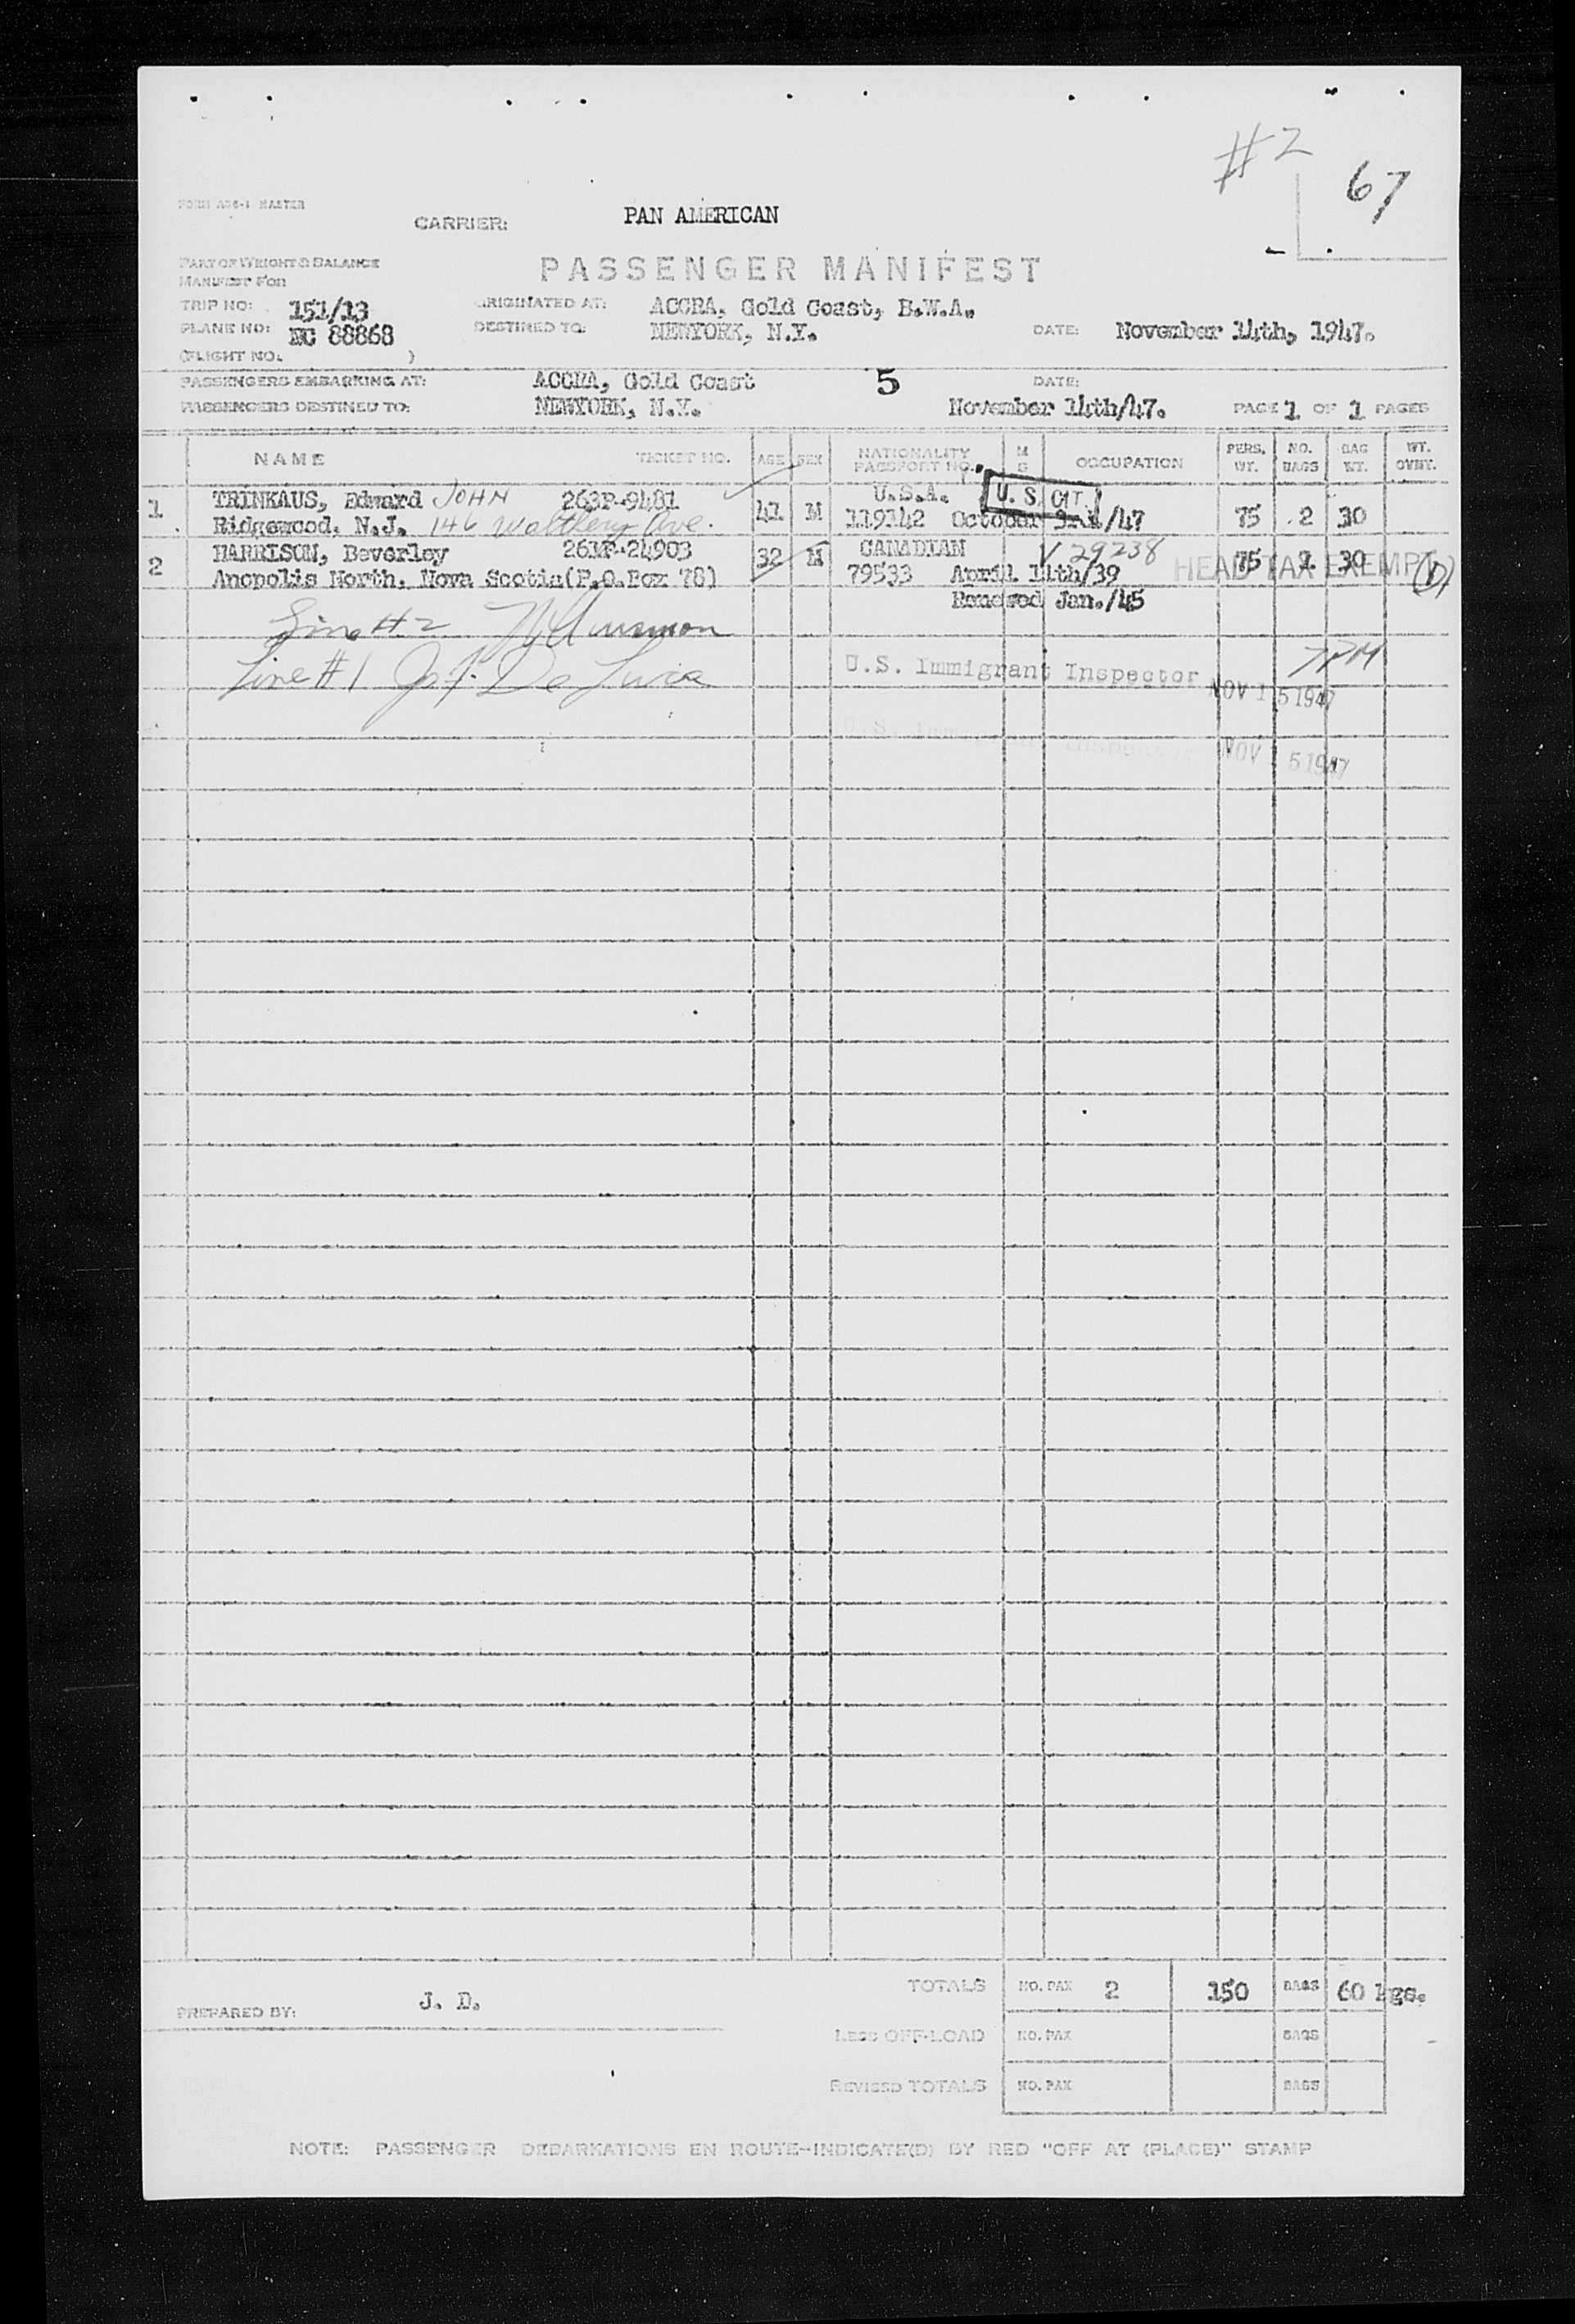 #2
67
FORM ACS-1 MASTER
CARRIER: PAN AMERICAN
PART OF WEIGHT & BALANCE
MANIFEST FOR
PASSENGER MANIFEST
TRIP NO: 151/13 ORIGINATED AT: ACCRA, Gold Coast, B.W.A.
PLANE NO: NC 88868 DESTINED TO: NEWYORK, N.Y. DATE: November 14th, 1947.
(FLIGHT NO. )
PASSENGERS EMBARKING AT: ACCRA, Gold Coast 5 DATE:
PASSENGERS DESTINED TO: NEWYORK, N.Y. November 14th/47. PAGE 1 OF 1 PAGES
NAME TICKET NO. AGE SEX NATIONALITY PASSPORT NO. M S OCCUPATION PERS. WT. NO. BAGS BAG WT. WT. OVWT.
1 TRINKAUS, Edward JOHN 263P-9481 41 M U.S.A. U.S. CIT. 75 2 30
Ridgewood, N.J. 146 Ave. 119142 October /47
2 HARRISON, Beverley 24903 32 M CANADIAN V 29238 75 30 HEAD TAX EXEMPT (D)
Anopolis North, Nova Scotia(P.O.Box 78) 79533 April 11th/39
Renewed Jan./45
Line #2
Line #1 De Luca U.S. Immigrant Inspector 7PM
NOV 15 1947
U.S. Immigrant Inspector NOV 15 1947
TOTALS NO. PAX 2 150 BAGS 60 kgs.
PREPARED BY: J. D.
LESS OFF-LOAD NO. PAX BAGS
REVISED TOTALS NO. PAX BAGS
NOTE: PASSENGER DEBARKATIONS EN ROUTE-INDICATE(D) BY RED "OFF AT (PLACE)" STAMP